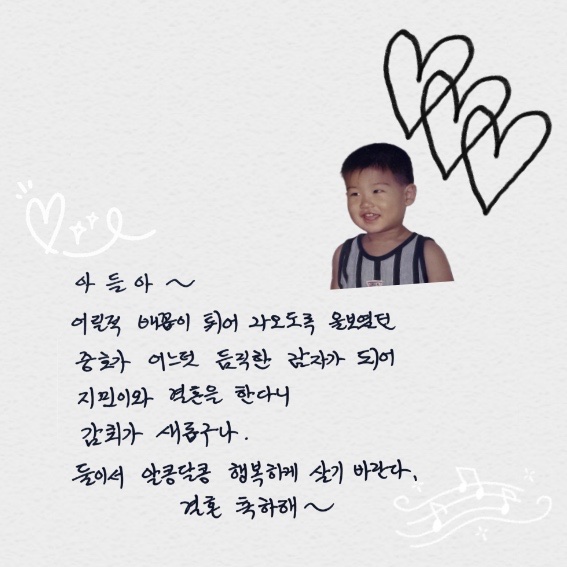 아들아~
어릴적 배꼽이 튀어 나오도록 울보였던
중호가 어느덧 듬직한 남자가 되어
지민이와 결혼을 한다니
감회가 새롭구나.
둘이서 알콩달콩 행복하게 살기 바란다.
결혼 축하해~